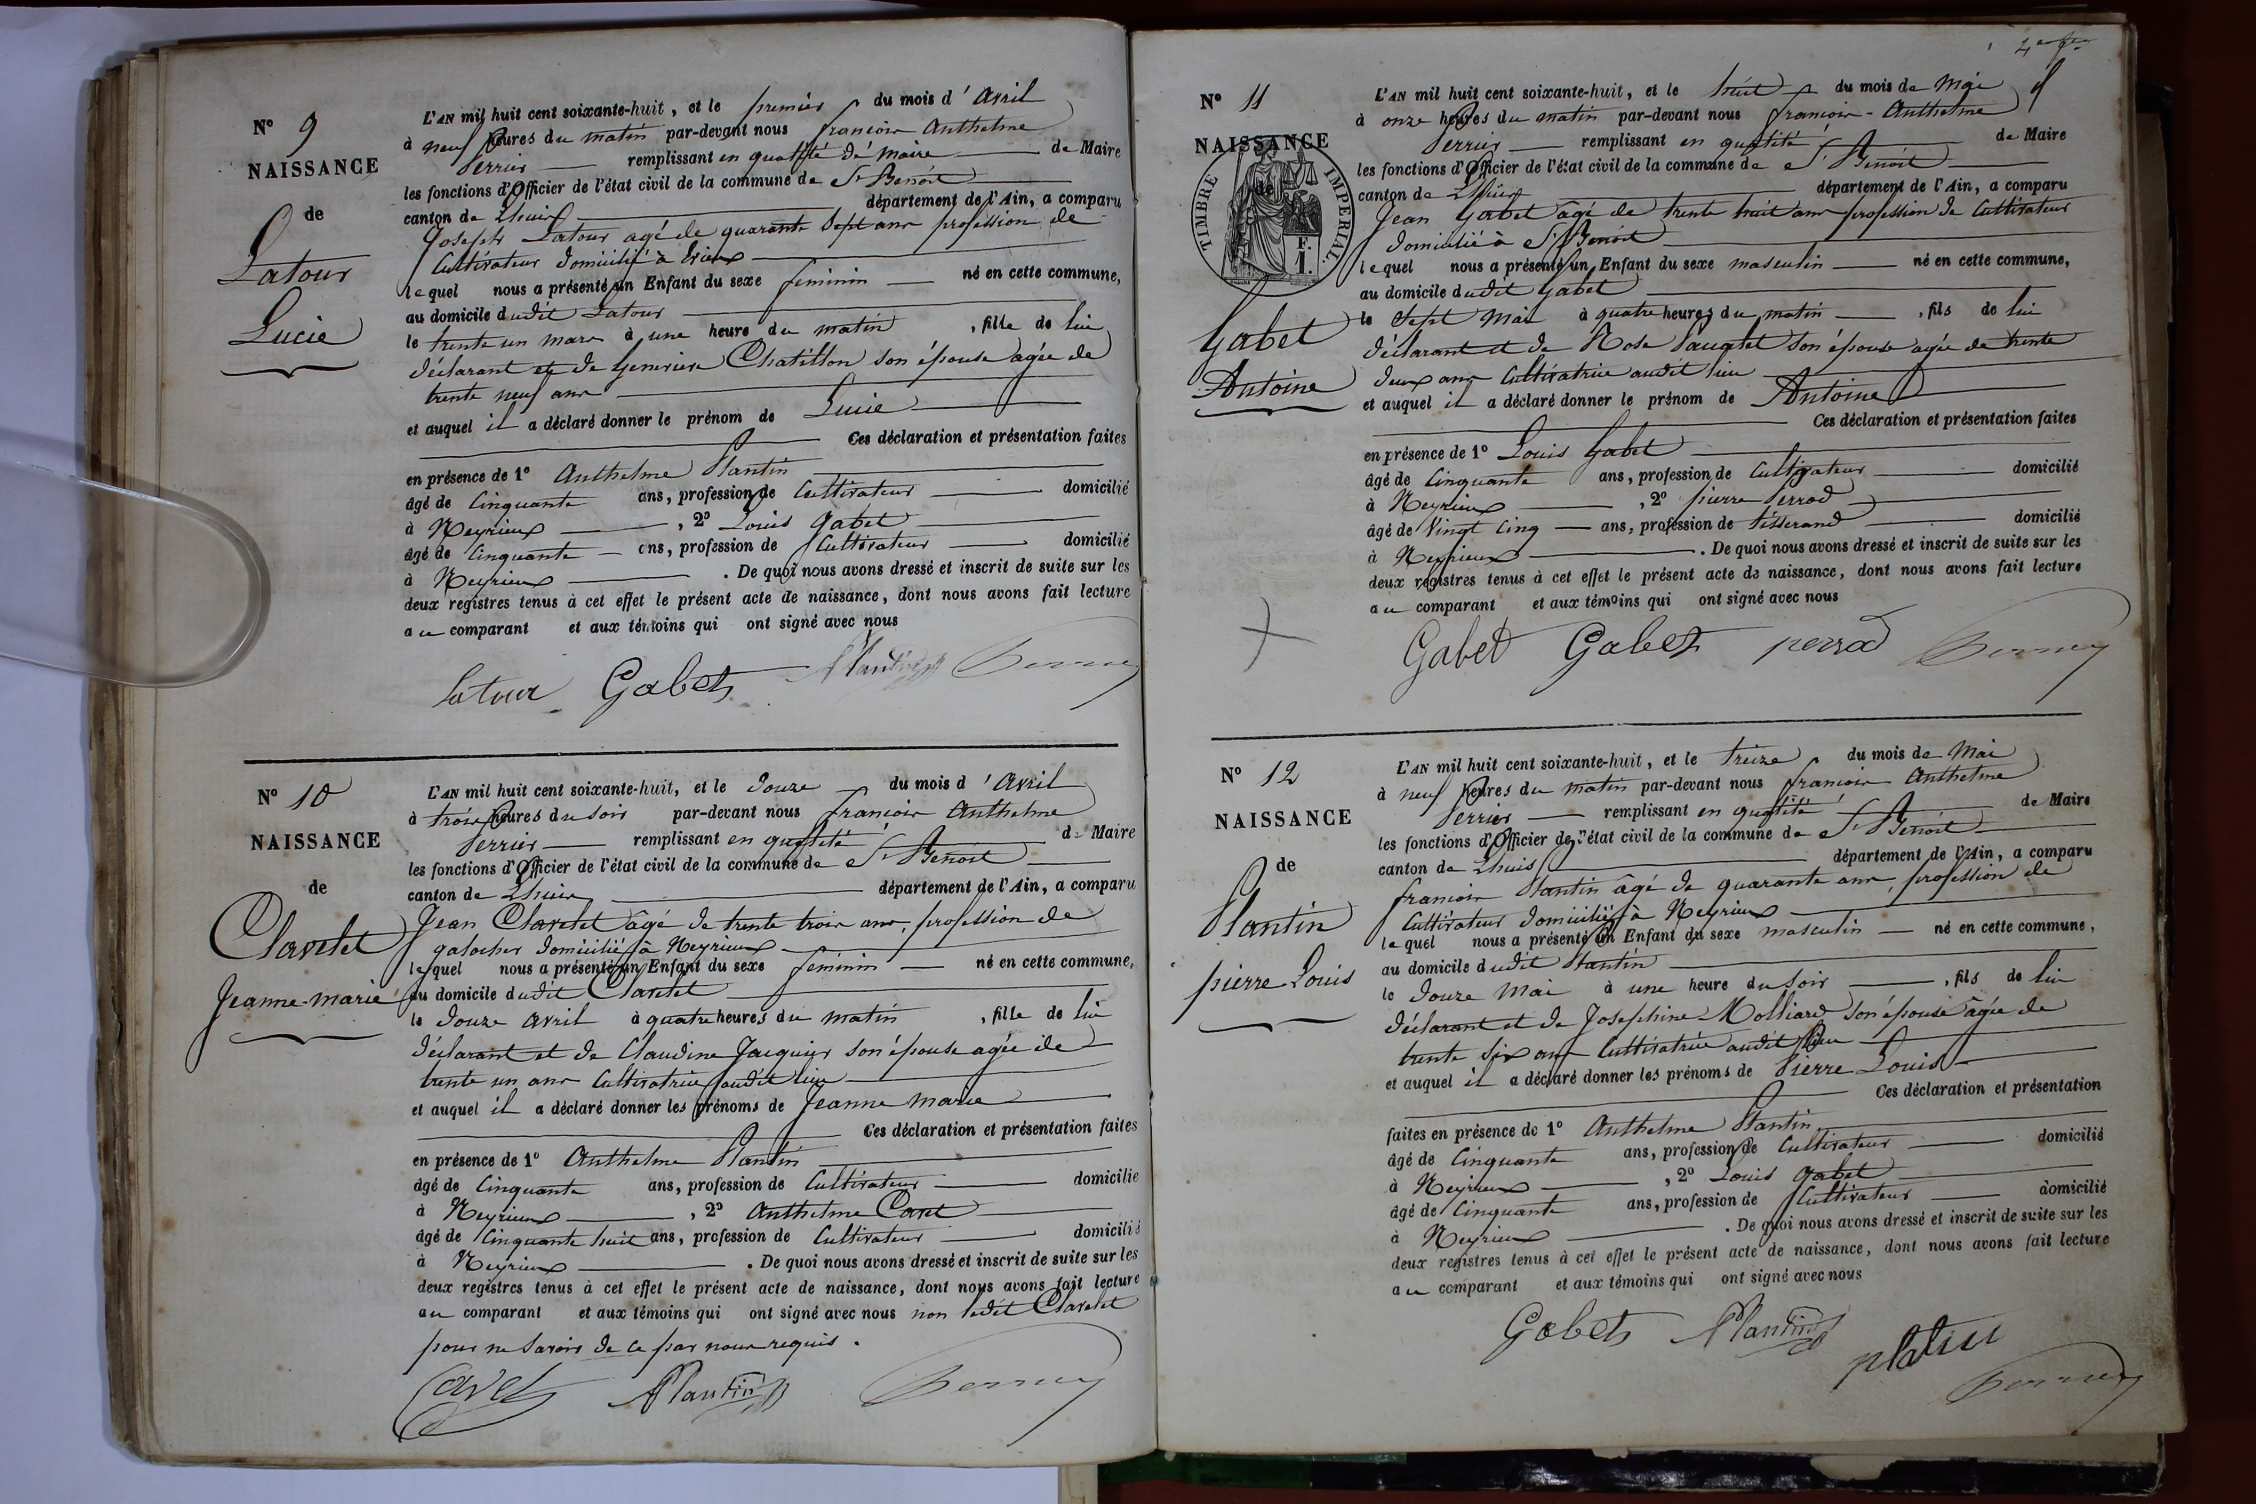 N° 9
NAISSANCE
de
Latour
Lucie
L'AN mil huit cent soixante-huit, et le premier du mois d'Avril
à neuf heures du matin par-devant nous françois Anthelme
Perrier remplissant en qualité de maire de Maire
les fonctions d'Officier de l'état civil de la commune de St Benoit
canton de Lhuis département de l'Ain, a comparu
Joseph Latour agé de quarante sept ans profession de
Cultivateur domicilié à
lequel nous a présenté un Enfant du sexe feminin né en cette commune,
au domicile dudit Latour
le trente un mars à une heure du matin, fille de lui
déclarant et de Genevieve Chatillon son épouse agée de
trente neuf ans
et auquel il a déclaré donner le prénom de Lucie
Ces déclaration et présentation faites
en présence de 1° Anthelme Plantin
âgé de Cinquante ans, profession de Cultivateur domicilié
à Neyrieux, 2° Louis Gabet
âgé de Cinquante ans, profession de Cultivateur domicilié
à Neyrieux. De quoi nous avons dressé et inscrit de suite sur les
deux registres tenus à cet effet le présent acte de naissance, dont nous avons fait lecture
au comparant et aux témoins qui ont signé avec nous
latour Gabet Plantin
N° 10
NAISSANCE
de
Clavelet
Jeanne-marie
L'AN mil huit cent soixante-huit, et le Douze du mois d'Avril
à trois heures du soir par-devant nous françois Anthelme
Perrier remplissant en qualité de Maire
les fonctions d'Officier de l'état civil de la commune de St Benoit
canton de Lhuis département de l'Ain, a comparu
Jean Clavelet âgé de trente trois ans, profession de
galocher domicilié à Neyrieux
lequel nous a présenté un Enfant du sexe feminin né en cette commune,
au domicile dudit Clavelet
le Douze avril à quatre heures du matin, fille de lui
déclarant et de Claudine Jacquier son épouse agée de
trente un ans Cultivatrice audit lieu
et auquel il a déclaré donner les prénoms de Jeanne marie
Ces déclaration et présentation faites
en présence de 1° Anthelme Plantin
âgé de Cinquante ans, profession de Cultivateur domicilié
à Neyrieux, 2° Anthelme Cavet
âgé de Cinquante huit ans, profession de Cultivateur domicilié
à Neyrieux. De quoi nous avons dressé et inscrit de suite sur les
deux registres tenus à cet effet le présent acte de naissance, dont nous avons fait lecture
au comparant et aux témoins qui ont signé avec nous non ledit Clavelet
pour ne savoir de ce par nous requis.
Cavet Plantin
N° 11
NAISSANCE
de
TIMBRE IMPERIAL
F.
1.
Gabet
Antoine
L'AN mil huit cent soixante-huit, et le huit du mois de Mai
à onze heures du matin par-devant nous françois-Anthelme
Perrier remplissant en qualité de Maire
les fonctions d'Officier de l'état civil de la commune de St Benoit
canton de Lhuis département de l'Ain, a comparu
Jean Gabet âgé de trente huit ans profession de Cultivateur
domicilié à St Benoit
lequel nous a présenté un Enfant du sexe masculin né en cette commune,
au domicile dudit Gabet
le Sept Mai à quatre heures du matin, fils de lui
déclarant et de Rose son épouse agée de trente
deux ans Cultivatrice audit lieu
et auquel il a déclaré donner le prénom de Antoine
Ces déclaration et présentation faites
en présence de 1° Louis Gabet
âgé de Cinquante ans, profession de Cultivateur domicilié
à Neyrieux, 2° pierre Perrod
âgé de Vingt Cinq ans, profession de tisserand domicilié
à Neyrieux. De quoi nous avons dressé et inscrit de suite sur les
deux registres tenus à cet effet le présent acte de naissance, dont nous avons fait lecture
au comparant et aux témoins qui ont signé avec nous
Gabet Gabet perrod
N° 12
NAISSANCE
de
Plantin
pierre Louis
L'AN mil huit cent soixante-huit, et le treize du mois de Mai
à neuf heures du matin par-devant nous françois Anthelme
Perrier remplissant en qualité de Maire
les fonctions d'Officier de l'état civil de la commune de St Benoit
canton de Lhuis département de l'Ain, a comparu
françois Plantin âgé de quarante ans, profession de
Cultivateur domicilié à Neyrieux
lequel nous a présenté un Enfant du sexe masculin né en cette commune,
au domicile dudit Plantin
le Douze Mai à une heure du soir, fils de lui
déclarant et de Josephine Molliard son épouse âgée de
trente six ans Cultivatrice audit lieu
et auquel il a déclaré donner les prénoms de Pierre Louis
Ces déclaration et présentation
faites en présence de 1° Anthelme Plantin
âgé de Cinquante ans, profession de Cultivateur domicilié
à Neyrieux, 2° Louis Gabet
âgé de Cinquante ans, profession de Cultivateur domicilié
à Neyrieux. De quoi nous avons dressé et inscrit de suite sur les
deux registres tenus à cet effet le présent acte de naissance, dont nous avons fait lecture
au comparant et aux témoins qui ont signé avec nous
Gabet Plantin